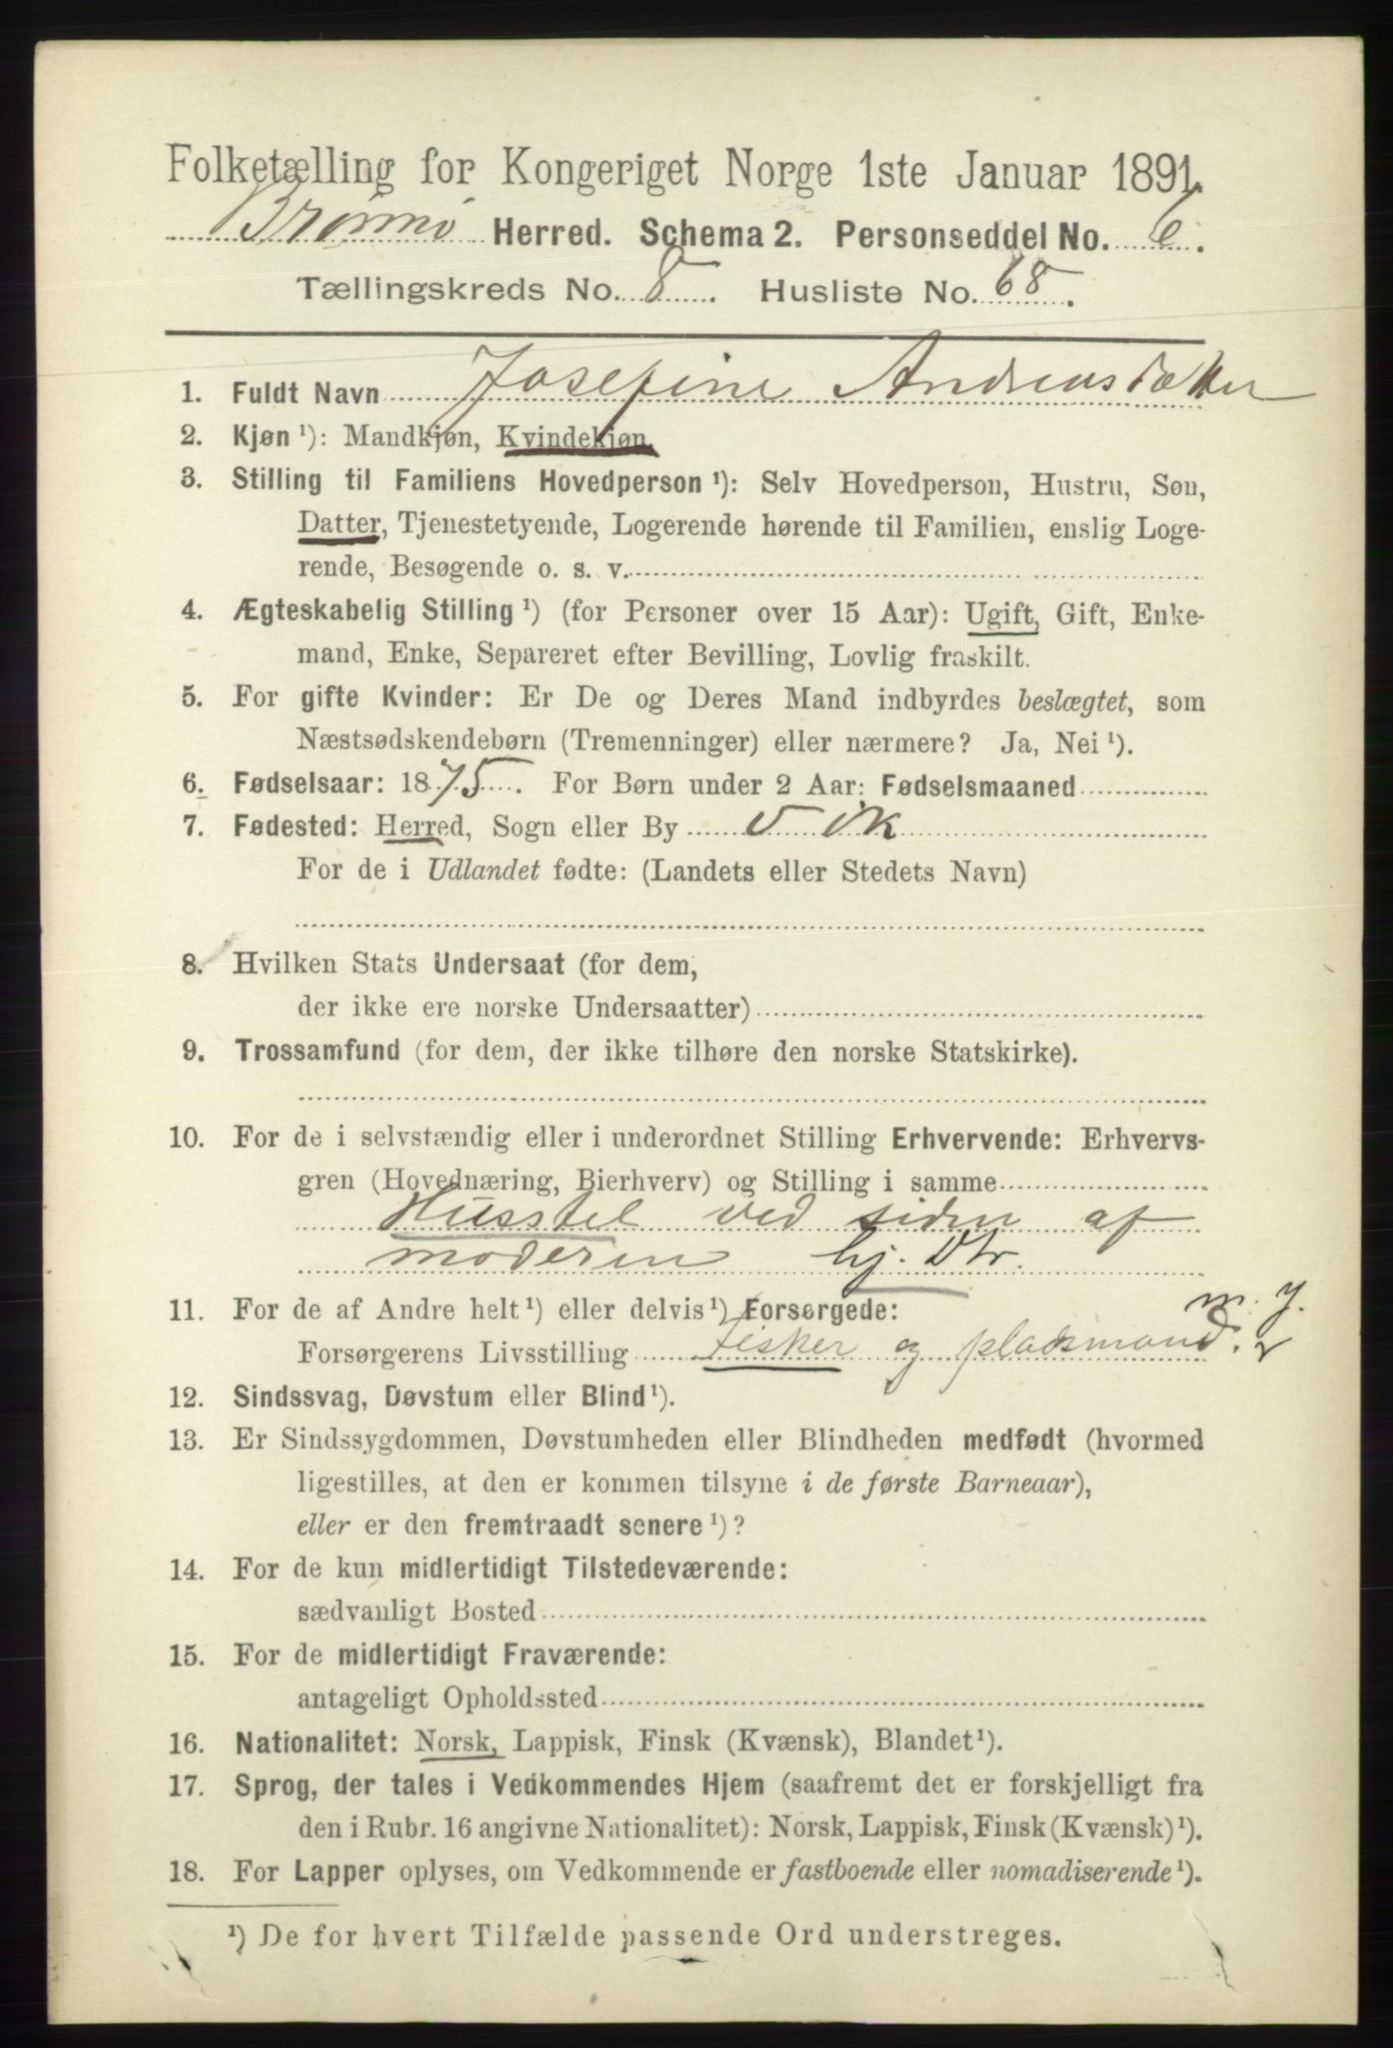 Folketælling for Kongeriget Norge 1ste Januar 1891.
Brønnø Herred. Schema 2. Personseddel No. 6.
Tællingskreds No. 8. Husliste No. 68.
1. Fuldt Navn Josefine Andreasdatter
2. Kjøn ¹): Mandkjøn, Kvindekjøn.
3. Stilling til Familiens Hovedperson ¹): Selv Hovedperson, Hustru, Søn,
Datter, Tjenestetyende, Logerende hørende til Familien, enslig Loge-
rende, Besøgende o. s. v.
4. Ægteskabelig Stilling ¹) (for Personer over 15 Aar): Ugift, Gift, Enke-
mand, Enke, Separeret efter Bevilling, Lovlig fraskilt.
5. For gifte Kvinder: Er De og Deres Mand indbyrdes beslægtet, som
Næstsødskendebørn (Tremenninger) eller nærmere? Ja, Nei ¹).
6. Fødselsaar: 1875. For Børn under 2 Aar: Fødselsmaaned
7. Fødested: Herred, Sogn eller By Vik
For de i Udlandet fødte: (Landets eller Stedets Navn)
8. Hvilken Stats Undersaat (for dem,
der ikke ere norske Undersaatter)
9. Trossamfund (for dem, der ikke tilhøre den norske Statskirke).
10. For de i selvstændig eller i underordnet Stilling Erhvervende: Erhvervs-
gren (Hovednæring, Bierhverv) og Stilling i samme
Husstel ved siden af
moderen hj. Dtr.
11. For de af Andre helt ¹) eller delvis ¹) Forsørgede: m. j.
Forsørgerens Livsstilling Fisker og pladsmand.
12. Sindssvag, Døvstum eller Blind ¹).
13. Er Sindssygdommen, Døvstumheden eller Blindheden medfødt (hvormed
ligestilles, at den er kommen tilsyne i de første Barneaar),
eller er den fremtraadt senere ¹)?
14. For de kun midlertidigt Tilstedeværende:
sædvanligt Bosted
15. For de midlertidigt Fraværende:
antageligt Opholdssted
16. Nationalitet: Norsk, Lappisk, Finsk (Kvænsk), Blandet ¹).
17. Sprog, der tales i Vedkommendes Hjem (saafremt det er forskjelligt fra
den i Rubr. 16 angivne Nationalitet): Norsk, Lappisk, Finsk (Kvænsk) ¹).
18. For Lapper oplyses, om Vedkommende er fastboende eller nomadiserende ¹).
¹) De for hvert Tilfælde passende Ord understreges.